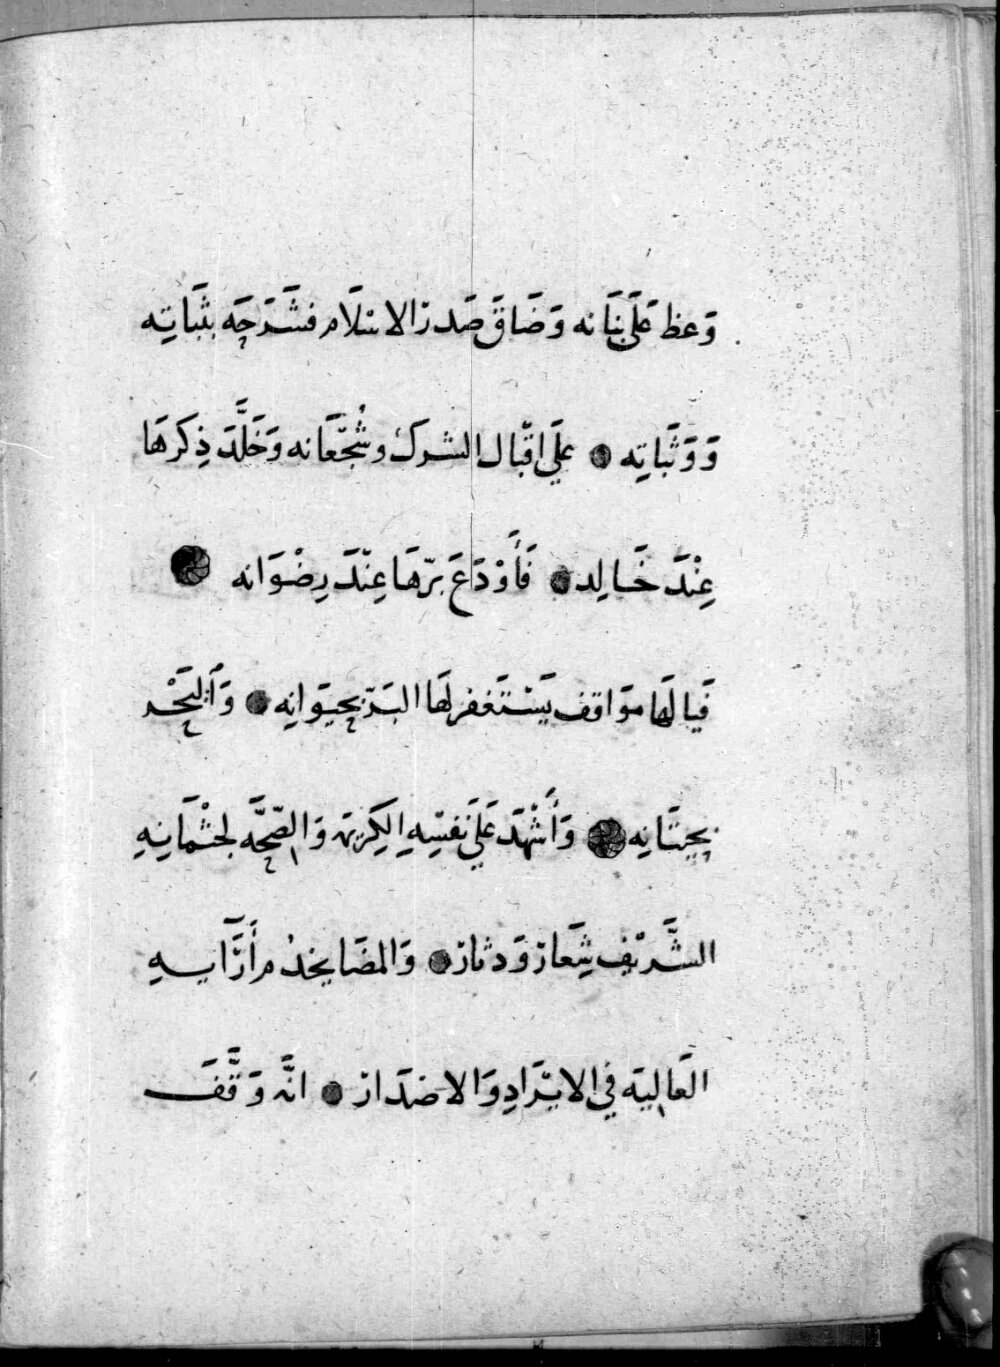 وَعظ عَلَى بَنَانه وَضَاقَ صَدرُ الاسْلَام فشَرَحَه بثَبَاتِه
وَوَثَباتِه علَى اقبال الشرك وشُجْعَانه وَخَلَّدَ ذِكرهَا
عِنْدَ خَالِد فَأَوْدَعَ بَرّهَا عِنْدَ رِضْوَانه
فَيا لَهَا موَاقف يَسْتَغفر لهَا البَرّ بحيَوَانِه وَالبَحْر
بحِيتَانِه وَأَشْهَدَ عَلَى نَفسِهِ الكَرِيمَة وَالصِّحَّه لجثْمَانِهِ
الشَّرِيْفِ شِعَار وَدثار وَالمضَا يخدُم أَرَآيهِ
العَالِيَه فِي الايْرَادِ وَالاصْدَار انَّه وَقَّفَ